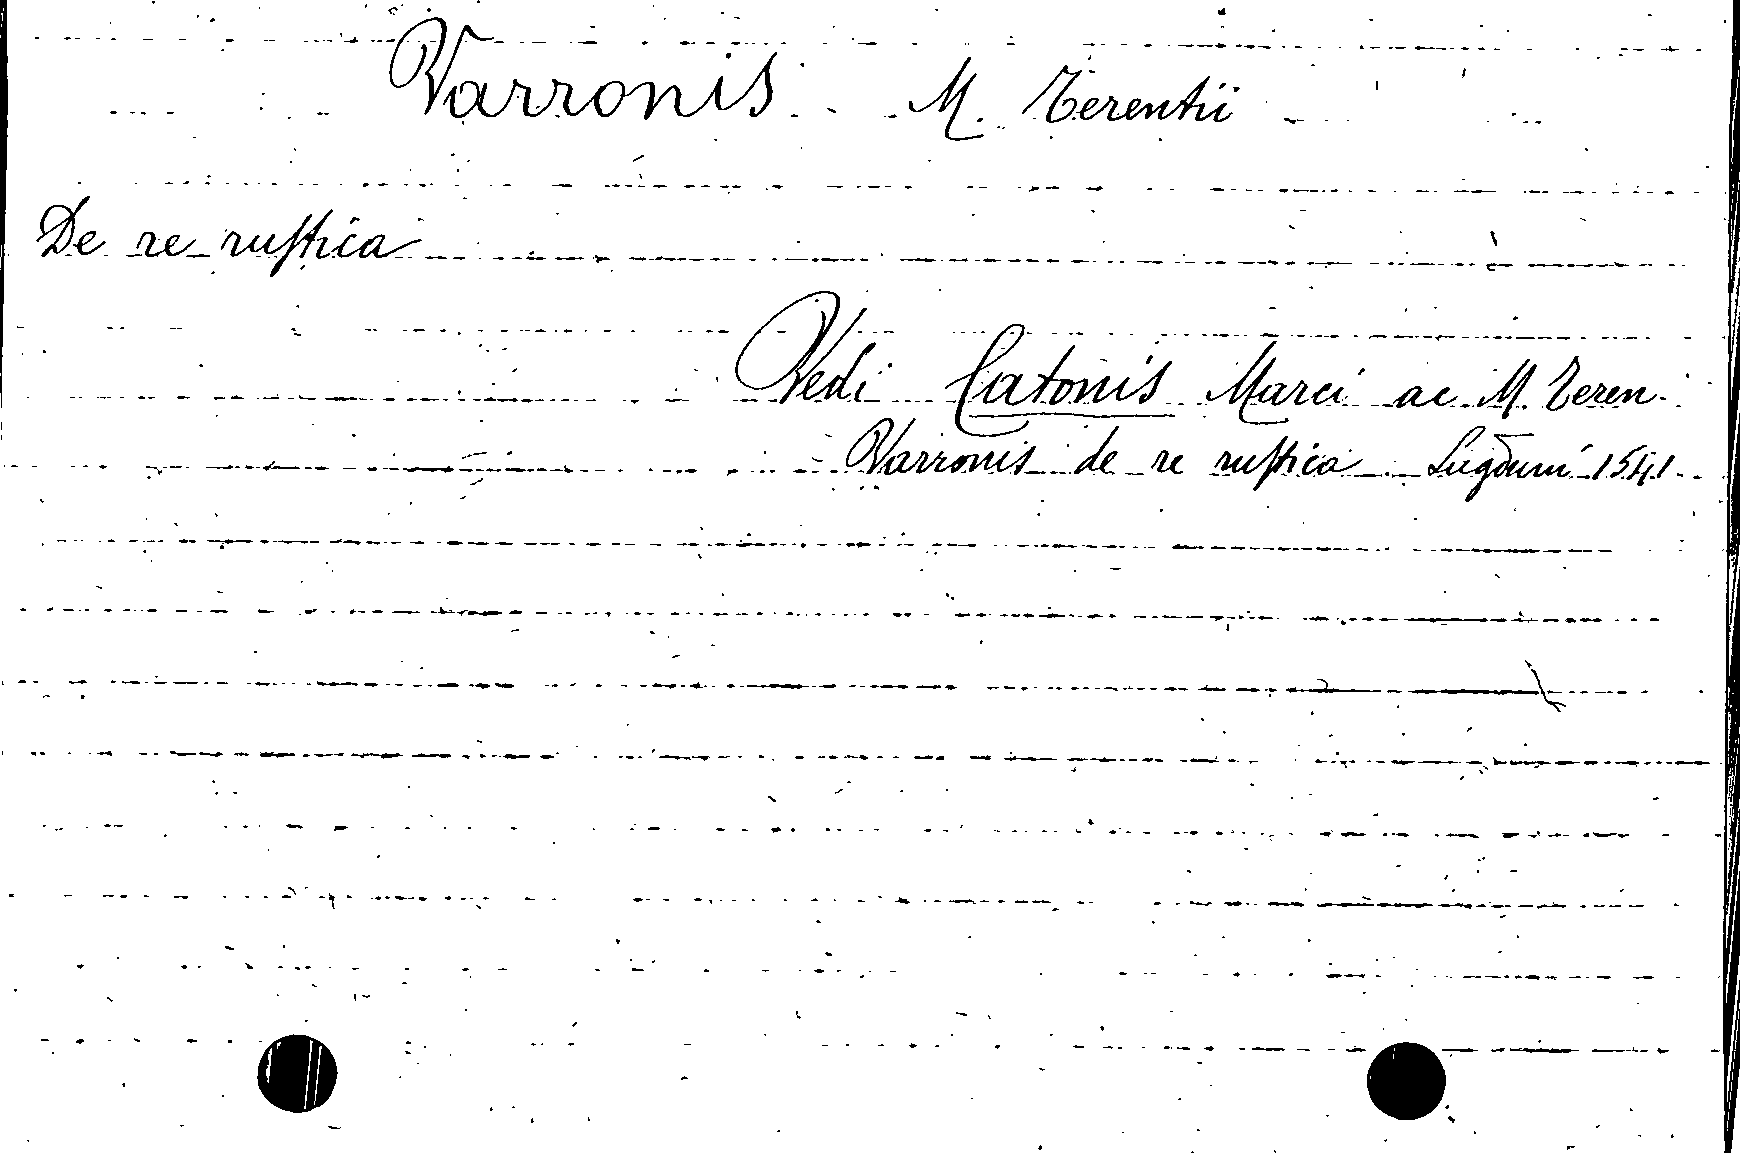 Varronis M. Terentii
De re rustica
Vedi Catonis Marci ac M. Teren.
Varronis de re rustica Lugduni 1541